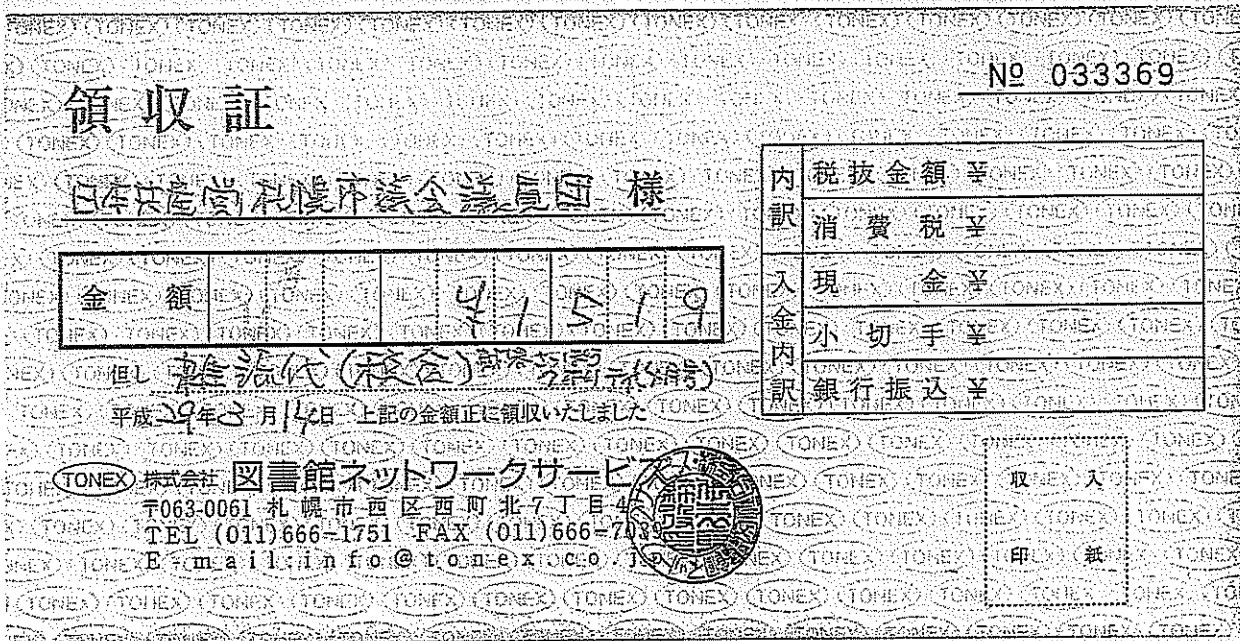 領収証
№ 033369
日本共産党札幌市議会議員団 様
金額 41519
但し 雑誌代(複合)
平成29年3月14日 上記の金額正に領収いたしました
TONEX 株式会社 図書館ネットワークサービス
〒063-0061 札幌市西区西町北7丁目4
TEL (011)666-1751 FAX (011)666-7039
E-mail:info@tonex.co.jp
内訳
税抜金額 ¥
消費税 ¥
入金内訳
現金 ¥
小切手 ¥
銀行振込 ¥
収入
印紙